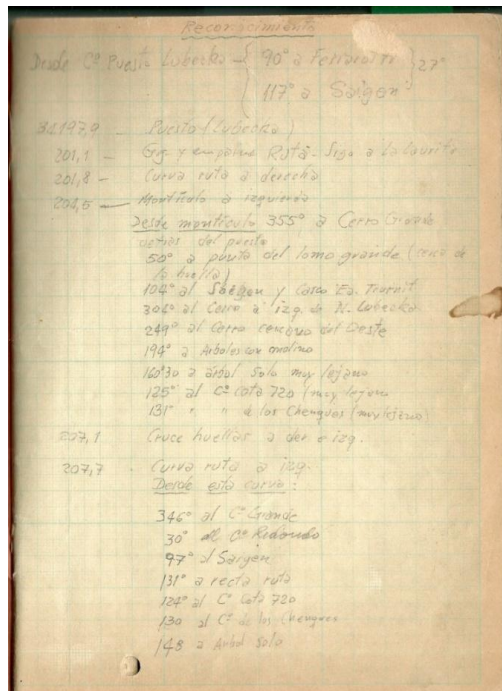 Reconocimiento
Desde Cº Puesto Lubecka - { 90° a Ferrarotti } 27°
117° a Saigon
34197,9 - Puesto (Lubecka)
201,1 - Gg y empalme Ruta - Sigo a La Laurita
201,8 - Curva ruta a derecha
204,5 - Montículo a izquierda
Desde montículo 355° a Cerro Grande
detrás del puesto
50° a punta del lomo grande (cerca de
la huella)
104° al Saigon y Casco Ea.
304° al Cerro a izq. de N. Lubecka
249° al Cerro cercano del Oeste
194° a Arboles con molino
160°30 a árbol solo muy lejano
125° al Cº Cota 720 (muy lejano
131° " " a los Chenques (muy lejano)
207,1 Cruce huellas a der e izq.
207,7 Curva ruta a izq.
Desde esta curva:
346° al Cº Grande
30° al Cº Redondo
97° al Saigon
131° a recta ruta
124° al Cº Cota 720
130 al Cº de los Chenques
148 a Arbol Solo